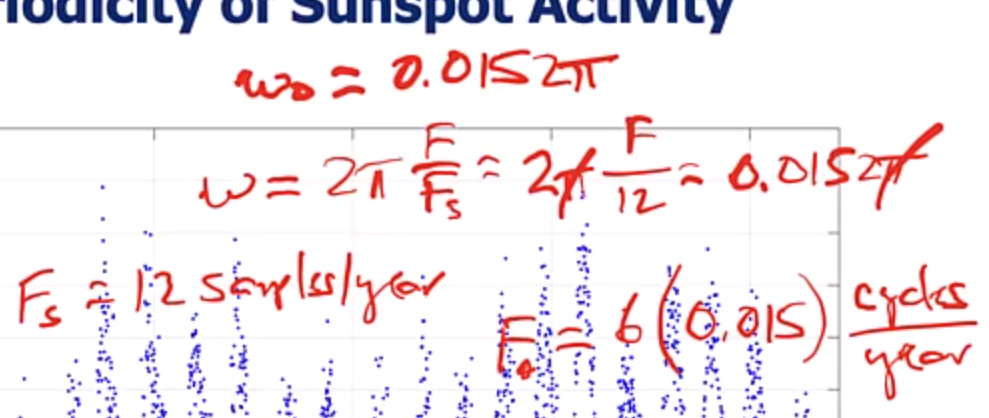 riodicity of Sunspot Activity
ω₀ = 0.0152π
ω = 2π F/Fₛ = 2π F/12 = 0.0152π
Fₛ = 12 samples/year
F₀ = 6(0.015) cycles/year